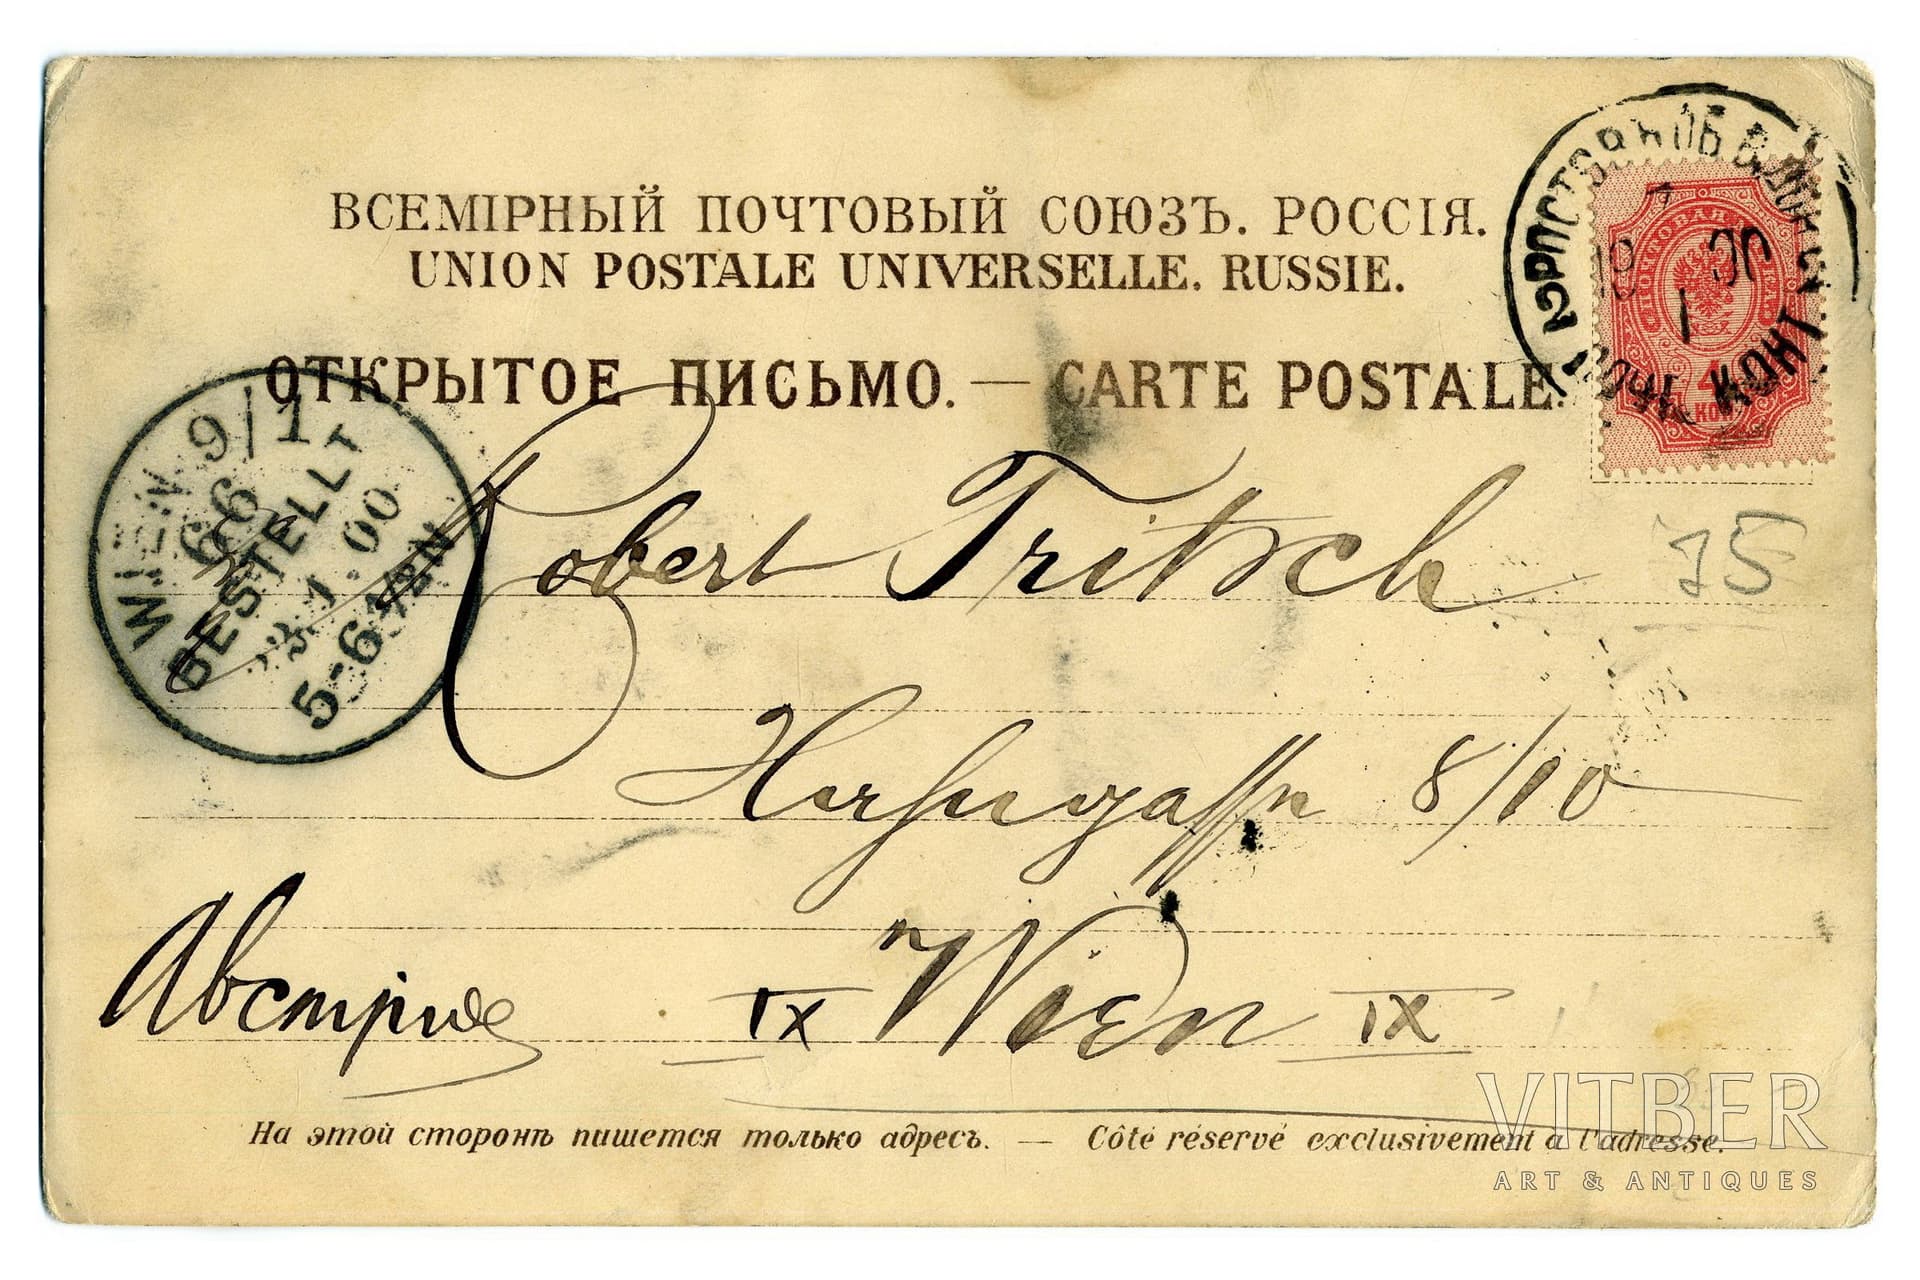 ВСЕМІРНЫЙ ПОЧТОВЫЙ СОЮЗЪ. РОССІЯ.
UNION POSTALE UNIVERSELLE. RUSSIE.
ОТКРЫТОЕ ПИСЬМО. — CARTE POSTALE.
РОСТОВЪ
1 00
4
КОП
WIEN 9/1
66
BESTELLT
1.00
5-6½N
Robert Fritsch
75
8/10
Австрія
IX Wien IX
На этой сторонѣ пишется только адресъ. — Côté réservé exclusivement à l'adresse.
VITBER
ART & ANTIQUES